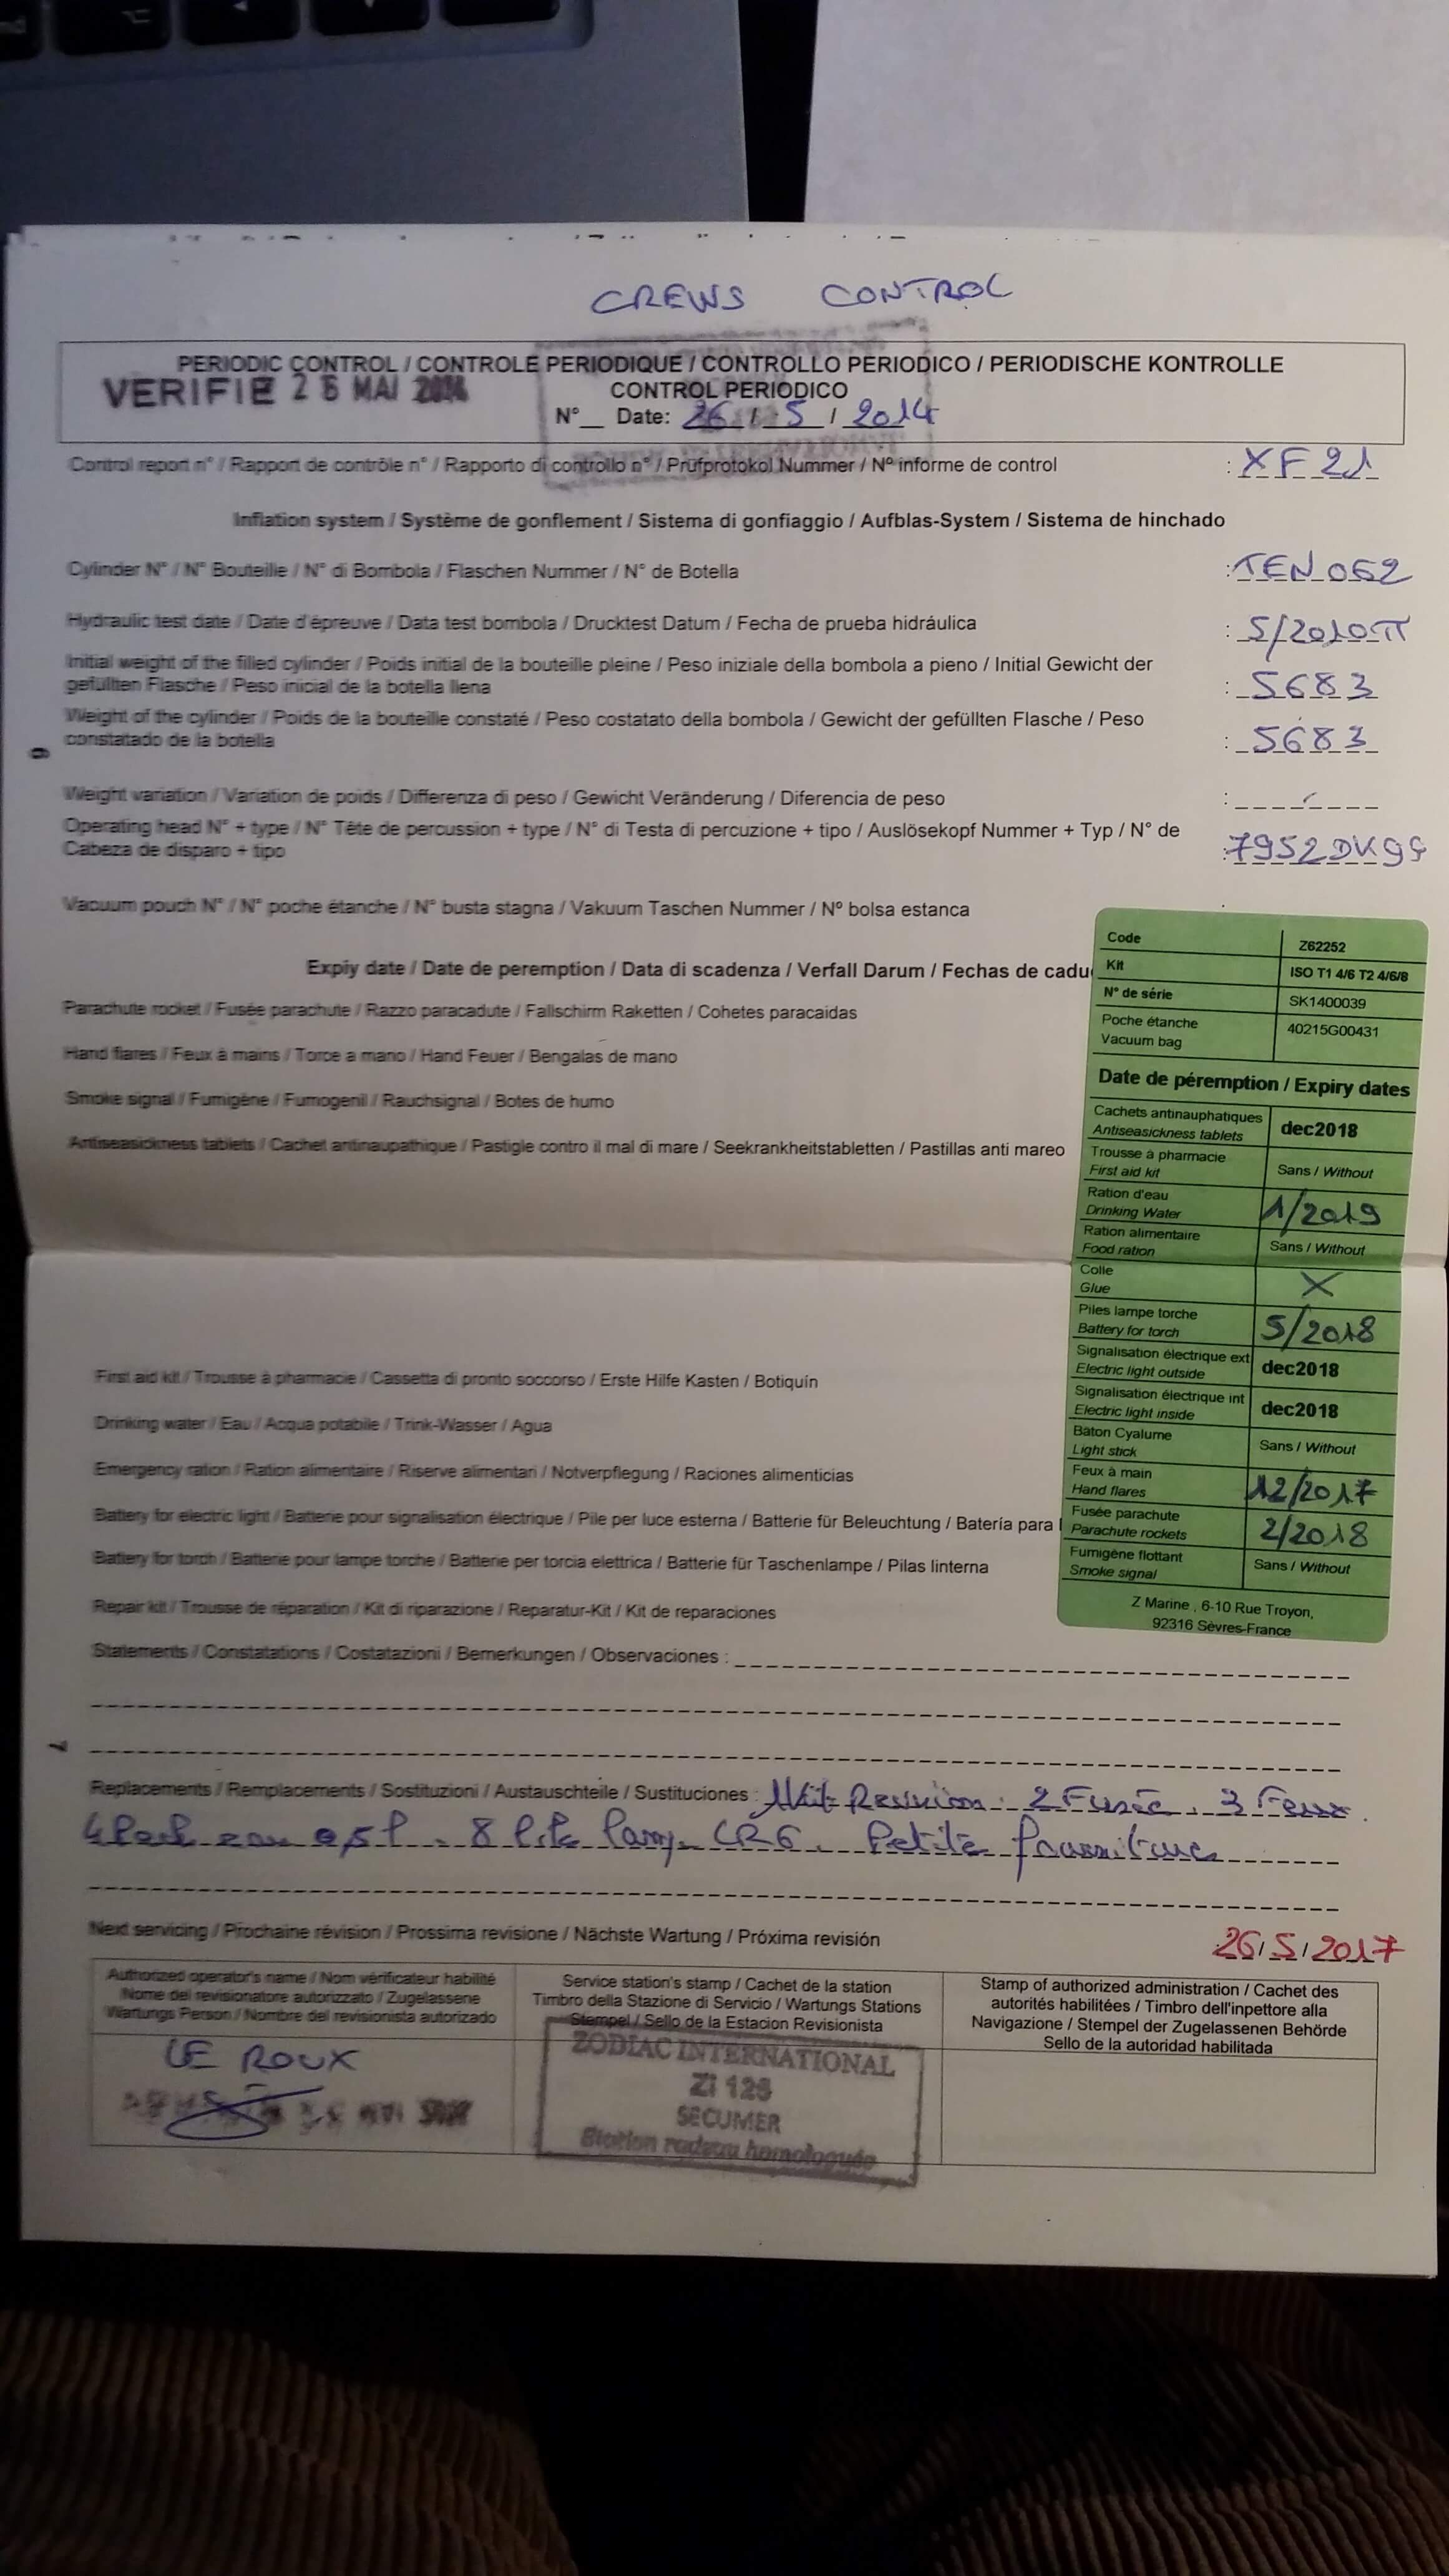 CREWS CONTROL
PERIODIC CONTROL / CONTROLE PERIODIQUE / CONTROLLO PERIODICO / PERIODISCHE KONTROLLE
CONTROL PERIODICO
VERIFIE 26 MAI 2014
N°__ Date: 26 / 5 / 2014
Control report n° / Rapport de contrôle n° / Rapporto di controllo n° / Prüfprotokol Nummer / Nº informe de control : XF21
Inflation system / Système de gonflement / Sistema di gonfiaggio / Aufblas-System / Sistema de hinchado
Cylinder N° / N° Bouteille / N° di Bombola / Flaschen Nummer / N° de Botella : TEN062
Hydraulic test date / Date d'épreuve / Data test bombola / Drucktest Datum / Fecha de prueba hidráulica : 5/2010
Initial weight of the filled cylinder / Poids initial de la bouteille pleine / Peso iniziale della bombola a pieno / Initial Gewicht der
gefüllten Flasche / Peso inicial de la botella llena : 5683
Weight of the cylinder / Poids de la bouteille constaté / Peso costatato della bombola / Gewicht der gefüllten Flasche / Peso
constatado de la botella : 5683
6
Weight variation / Variation de poids / Differenza di peso / Gewicht Veränderung / Diferencia de peso :
Operating head N° + type / N° Tête de percussion + type / N° di Testa di percuzione + tipo / Auslösekopf Nummer + Typ / N° de
Cabeza de disparo + tipo : 7952
Vacuum pouch N° / N° poche étanche / N° busta stagna / Vakuum Taschen Nummer / Nº bolsa estanca :
Expiy date / Date de peremption / Data di scadenza / Verfall Darum / Fechas de cadu
Parachute rocket / Fusée parachute / Razzo paracadute / Fallschirm Raketten / Cohetes paracaidas
Hand flares / Feux à mains / Torce a mano / Hand Feuer / Bengalas de mano
Smoke signal / Fumigène / Fumogenil / Rauchsignal / Botes de humo
Antiseasickness tablets / Cachet antinaupathique / Pastigle contro il mal di mare / Seekrankheitstabletten / Pastillas anti mareo
First aid kit / Trousse à pharmacie / Cassetta di pronto soccorso / Erste Hilfe Kasten / Botiquín
Drinking water / Eau / Acqua potabile / Trink-Wasser / Agua
Emergency ration / Ration alimentaire / Riserve alimentari / Notverpflegung / Raciones alimenticias
Battery for electric light / Batterie pour signalisation électrique / Pile per luce esterna / Batterie für Beleuchtung / Batería para
Battery for torch / Batterie pour lampe torche / Batterie per torcia elettrica / Batterie für Taschenlampe / Pilas linterna
Repair kit / Trousse de réparation / Kit di riparazione / Reparatur-Kit / Kit de reparaciones
Code Z62252
Kit ISO T1 4/6 T2 4/6/8
N° de série SK1400039
Poche étanche 40215G00431
Vacuum bag
Date de péremption / Expiry dates
Cachets antinauphatiques dec2018
Antiseasickness tablets
Trousse à pharmacie Sans / Without
First aid kit
Ration d'eau 1/2019
Drinking Water
Ration alimentaire Sans / Without
Food ration
Colle X
Glue
Piles lampe torche 5/2018
Battery for torch
Signalisation électrique ext dec2018
Electric light outside
Signalisation électrique int dec2018
Electric light inside
Bâton Cyalume Sans / Without
Light stick
Feux à main 12/2017
Hand flares
Fusée parachute 2/2018
Parachute rockets
Fumigène flottant Sans / Without
Smoke signal
Z Marine , 6-10 Rue Troyon,
92316 Sèvres-France
Statements / Constatations / Costatazioni / Bemerkungen / Observaciones :
7
Replacements / Remplacements / Sostituzioni / Austauschteile / Sustituciones : 1 Kit Revision. 2 Fusée. 3 Feux.
eau 0,5 l. 8 Lamp. CR6. Petite fourniture
Next servicing / Prochaine révision / Prossima revisione / Nächste Wartung / Próxima revisión : 26/5/2017
Authorized operator's name / Nom vérificateur habilité
Nome del revisionatore autorizzato / Zugelassene
Wartungs Person / Nombre del revisionista autorizado
LE ROUX
Service station's stamp / Cachet de la station
Timbro della Stazione di Servicio / Wartungs Stations
Stempel / Sello de la Estacion Revisionista
ZODIAC INTERNATIONAL
ZI 126
SECUMER
Station radeau homologuée
Stamp of authorized administration / Cachet des
autorités habilitées / Timbro dell'inpettore alla
Navigazione / Stempel der Zugelassenen Behörde
Sello de la autoridad habilitada